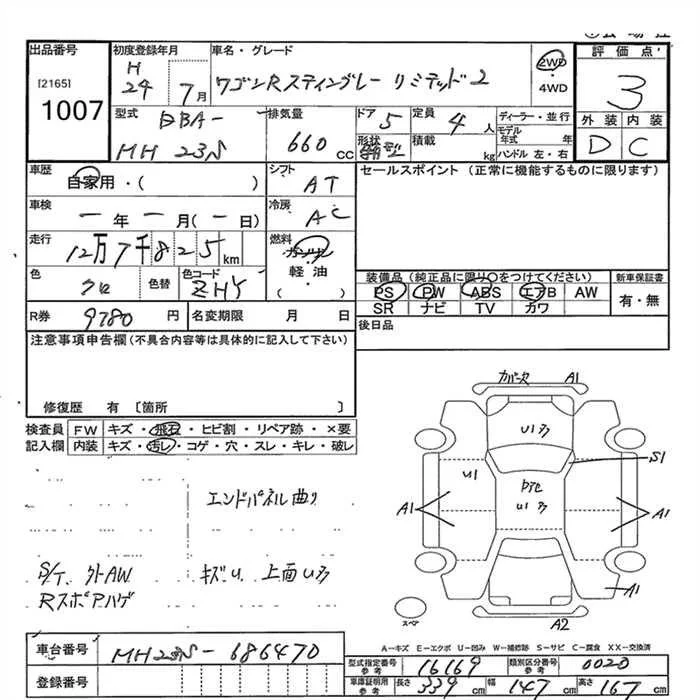 出品番号
[2165]
1007
初度登録年月
H
24 7月
車名・グレード
ワゴンRスティングレー リミテッド2
2WD
・
4WD
評価点
3
外装 内装
D C
型式
DBA-
MH23S
排気量
660 CC
ドア
5
形状
定員
4 人
積載
kg
ディーラー・並行
モデル
年式 年
ハンドル 左・右
車歴
自家用・( )
シフト
AT
車検
一年一月(一日)
冷房
AC
走行
12万7千825km
燃料
ガソリン
軽油
( )
色
クロ
色替
色コード
ZHY
R券
9780円
名変期限 月 日
セールスポイント (正常に機能するものに限ります)
装備品(純正品に限り○をつけてください)
PS PW ABS エアB AW
SR ナビ TV カワ
新車保証書
有・無
後日品
注意事項申告欄(不具合内容等は具体的に記入して下さい)
修復歴 有 〔箇所 〕
検査員
記入欄
FW キズ・飛石・ヒビ割・リペア跡・×要
内装 キズ・汚レ・コゲ・穴・スレ・キレ・破レ
エンドパネル曲り
S/T、外AW
Rスポアハゲ
キズU、上面U多
カバー欠 A1
U1多
S1
U1
U1多
A1
A1
A1
A2
スペア
A-キズ E-エクボ U-凹み W-補修跡 S-サビ C-腐食 XX-交換済
車台番号
MH23S-686470
登録番号
型式指定番号
参考
16169
類別区分番号
参考
0020
車庫証明用
参考
長さ
339cm
幅
147cm
高さ
167cm